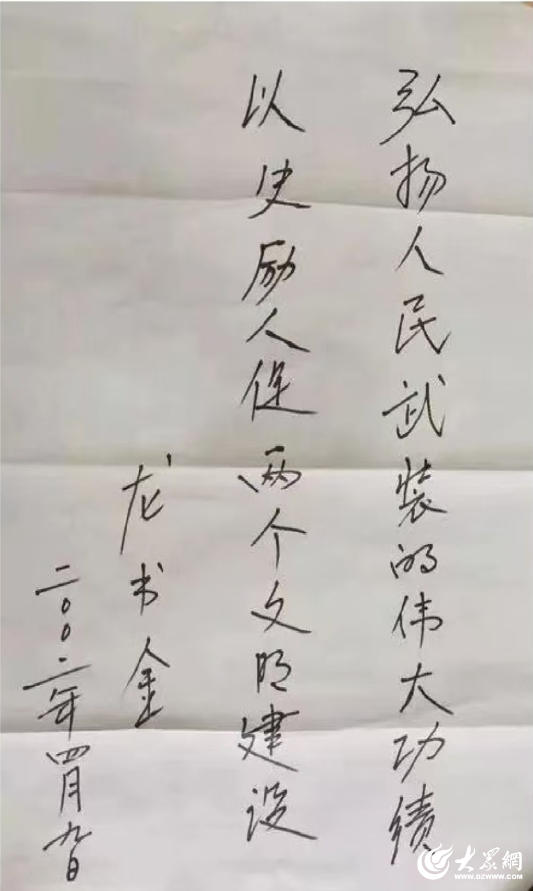 弘扬人民武装的伟大功绩
以史励人促两个文明建设
龙书金
二〇〇二年四月九日
大眾網
www.dzwww.com